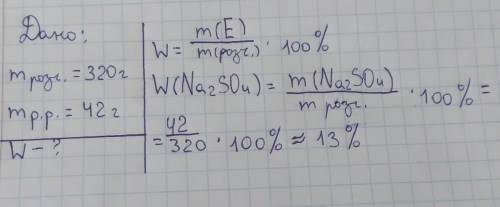 Дано:
m розч. = 320 г
m р.р. = 42 г
W - ?
W = m(E) / m(розч.) · 100%
W(Na₂SO₄) = m(Na₂SO₄) / m розч. · 100% =
= 42 / 320 · 100% ≈ 13%